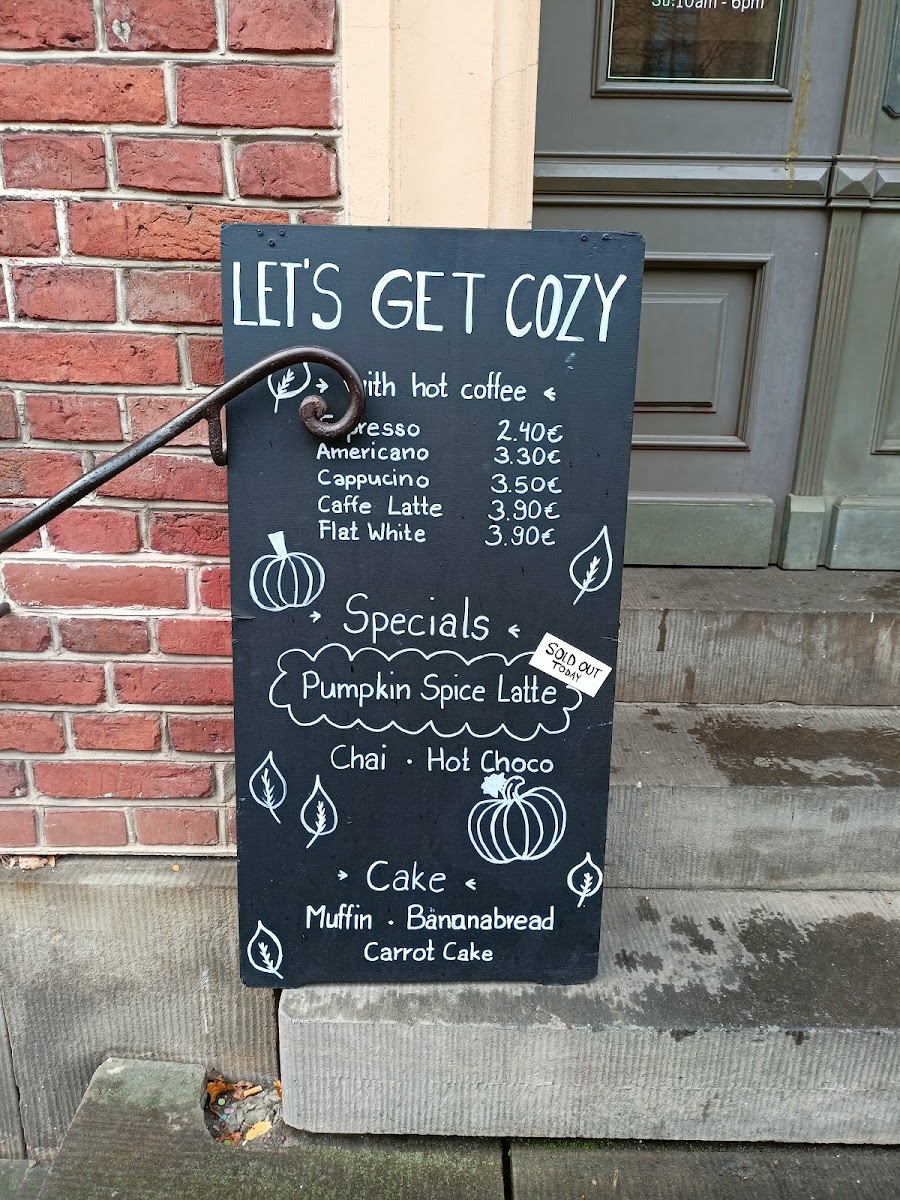 Su:10am - 6pm
LET'S GET COZY
with hot coffee
Espresso 2.40€
Americano 3.30€
Cappucino 3.50€
Caffe Latte 3.90€
Flat White 3.90€
Specials
SOLD OUT
TODAY
Pumpkin Spice Latte
Chai · Hot Choco
Cake
Muffin · Bananabread
Carrot Cake